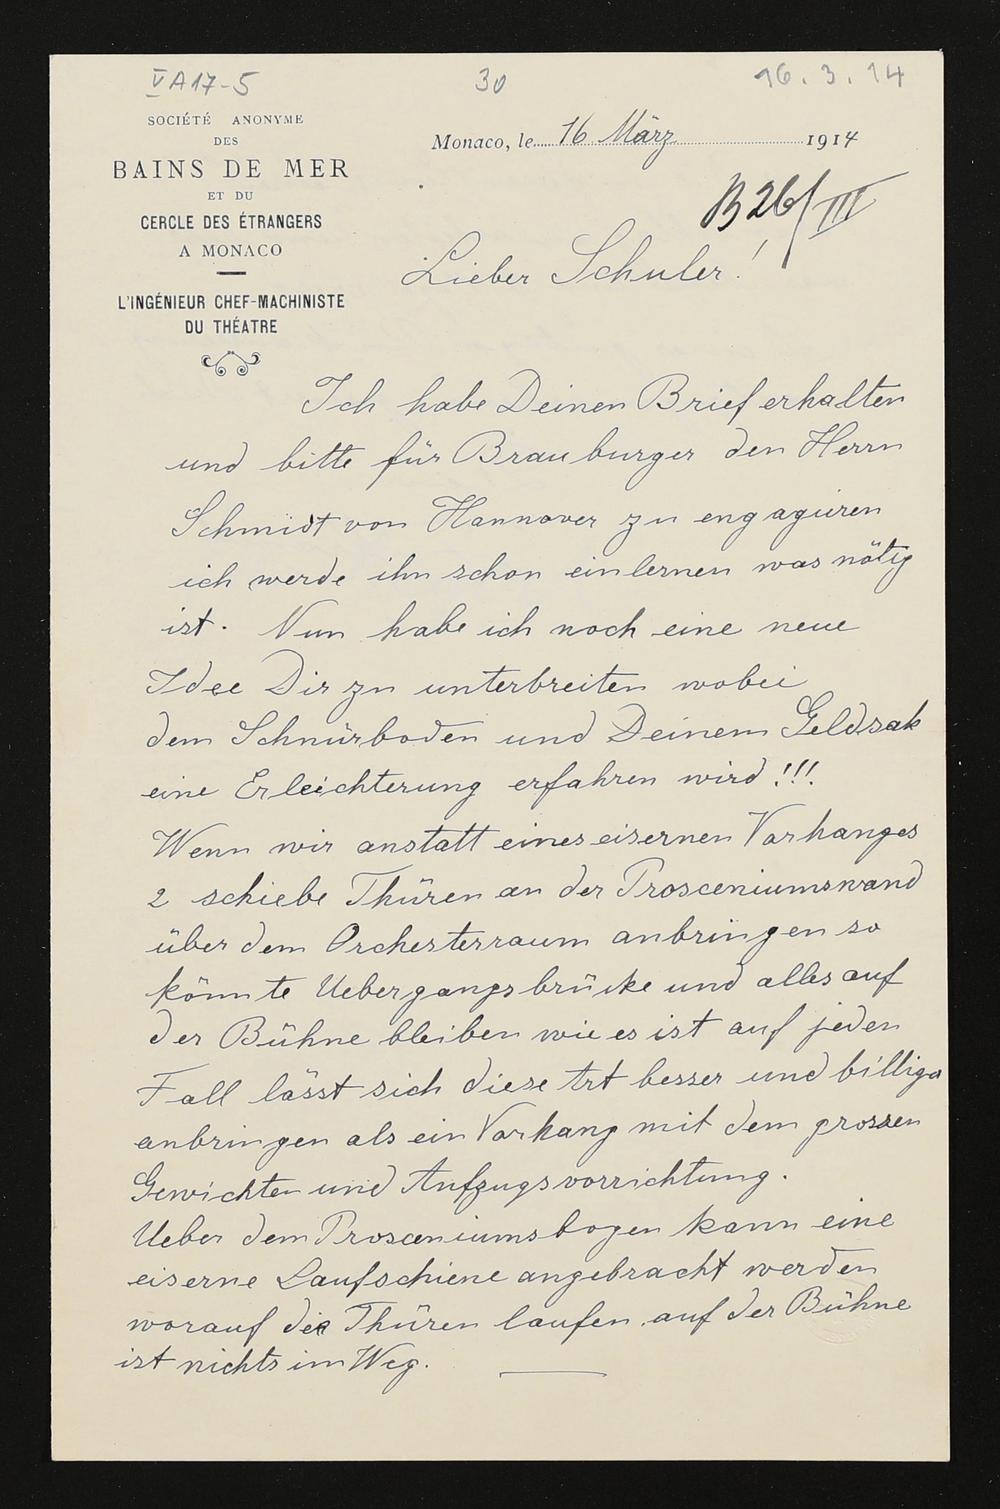 V A 17-5
30
16. 3. 14
SOCIÉTÉ ANONYME
DES
BAINS DE MER
ET DU
CERCLE DES ÉTRANGERS
A MONACO
L'INGÉNIEUR CHEF-MACHINISTE
DU THÉATRE
Monaco, le 16 März 1914
B 26/III
Lieber Schuler!
Ich habe Deinen Brief erhalten
und bitte für Brauburger den Herrn
Schmidt von Hannover zu engagiren
ich werde ihn schon einlernen was nötig
ist. Nun habe ich noch eine neue
Idee Dir zu unterbreiten wobei
dem Schnürboden und Deinem Geldsak
eine Erleichterung erfahren wird!!!
Wenn wir anstatt eines eisernen Vorhanges
2 schiebe Thüren an der Prosceniumswand
über dem Orchesterraum anbringen so
könnte Uebergangsbrücke und alles auf
der Bühne bleiben wie es ist auf jeden
Fall lässt sich diese Art besser und billiger
anbringen als ein Vorhang mit dem grossen
Gewichten und Aufzugsvorrichtung.
Ueber dem Prosceniumsbogen kann eine
eiserne Laufschiene angebracht werden
worauf die Thüren laufen auf der Bühne
ist nichts im Weg.